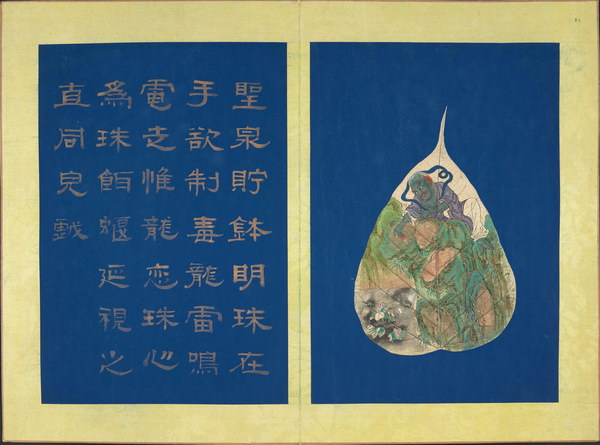 聖泉貯鉢明珠在
手欲制毒龍雷鳴
電走惟龍恋珠心
為珠餌蝘延視之
直同兒戲